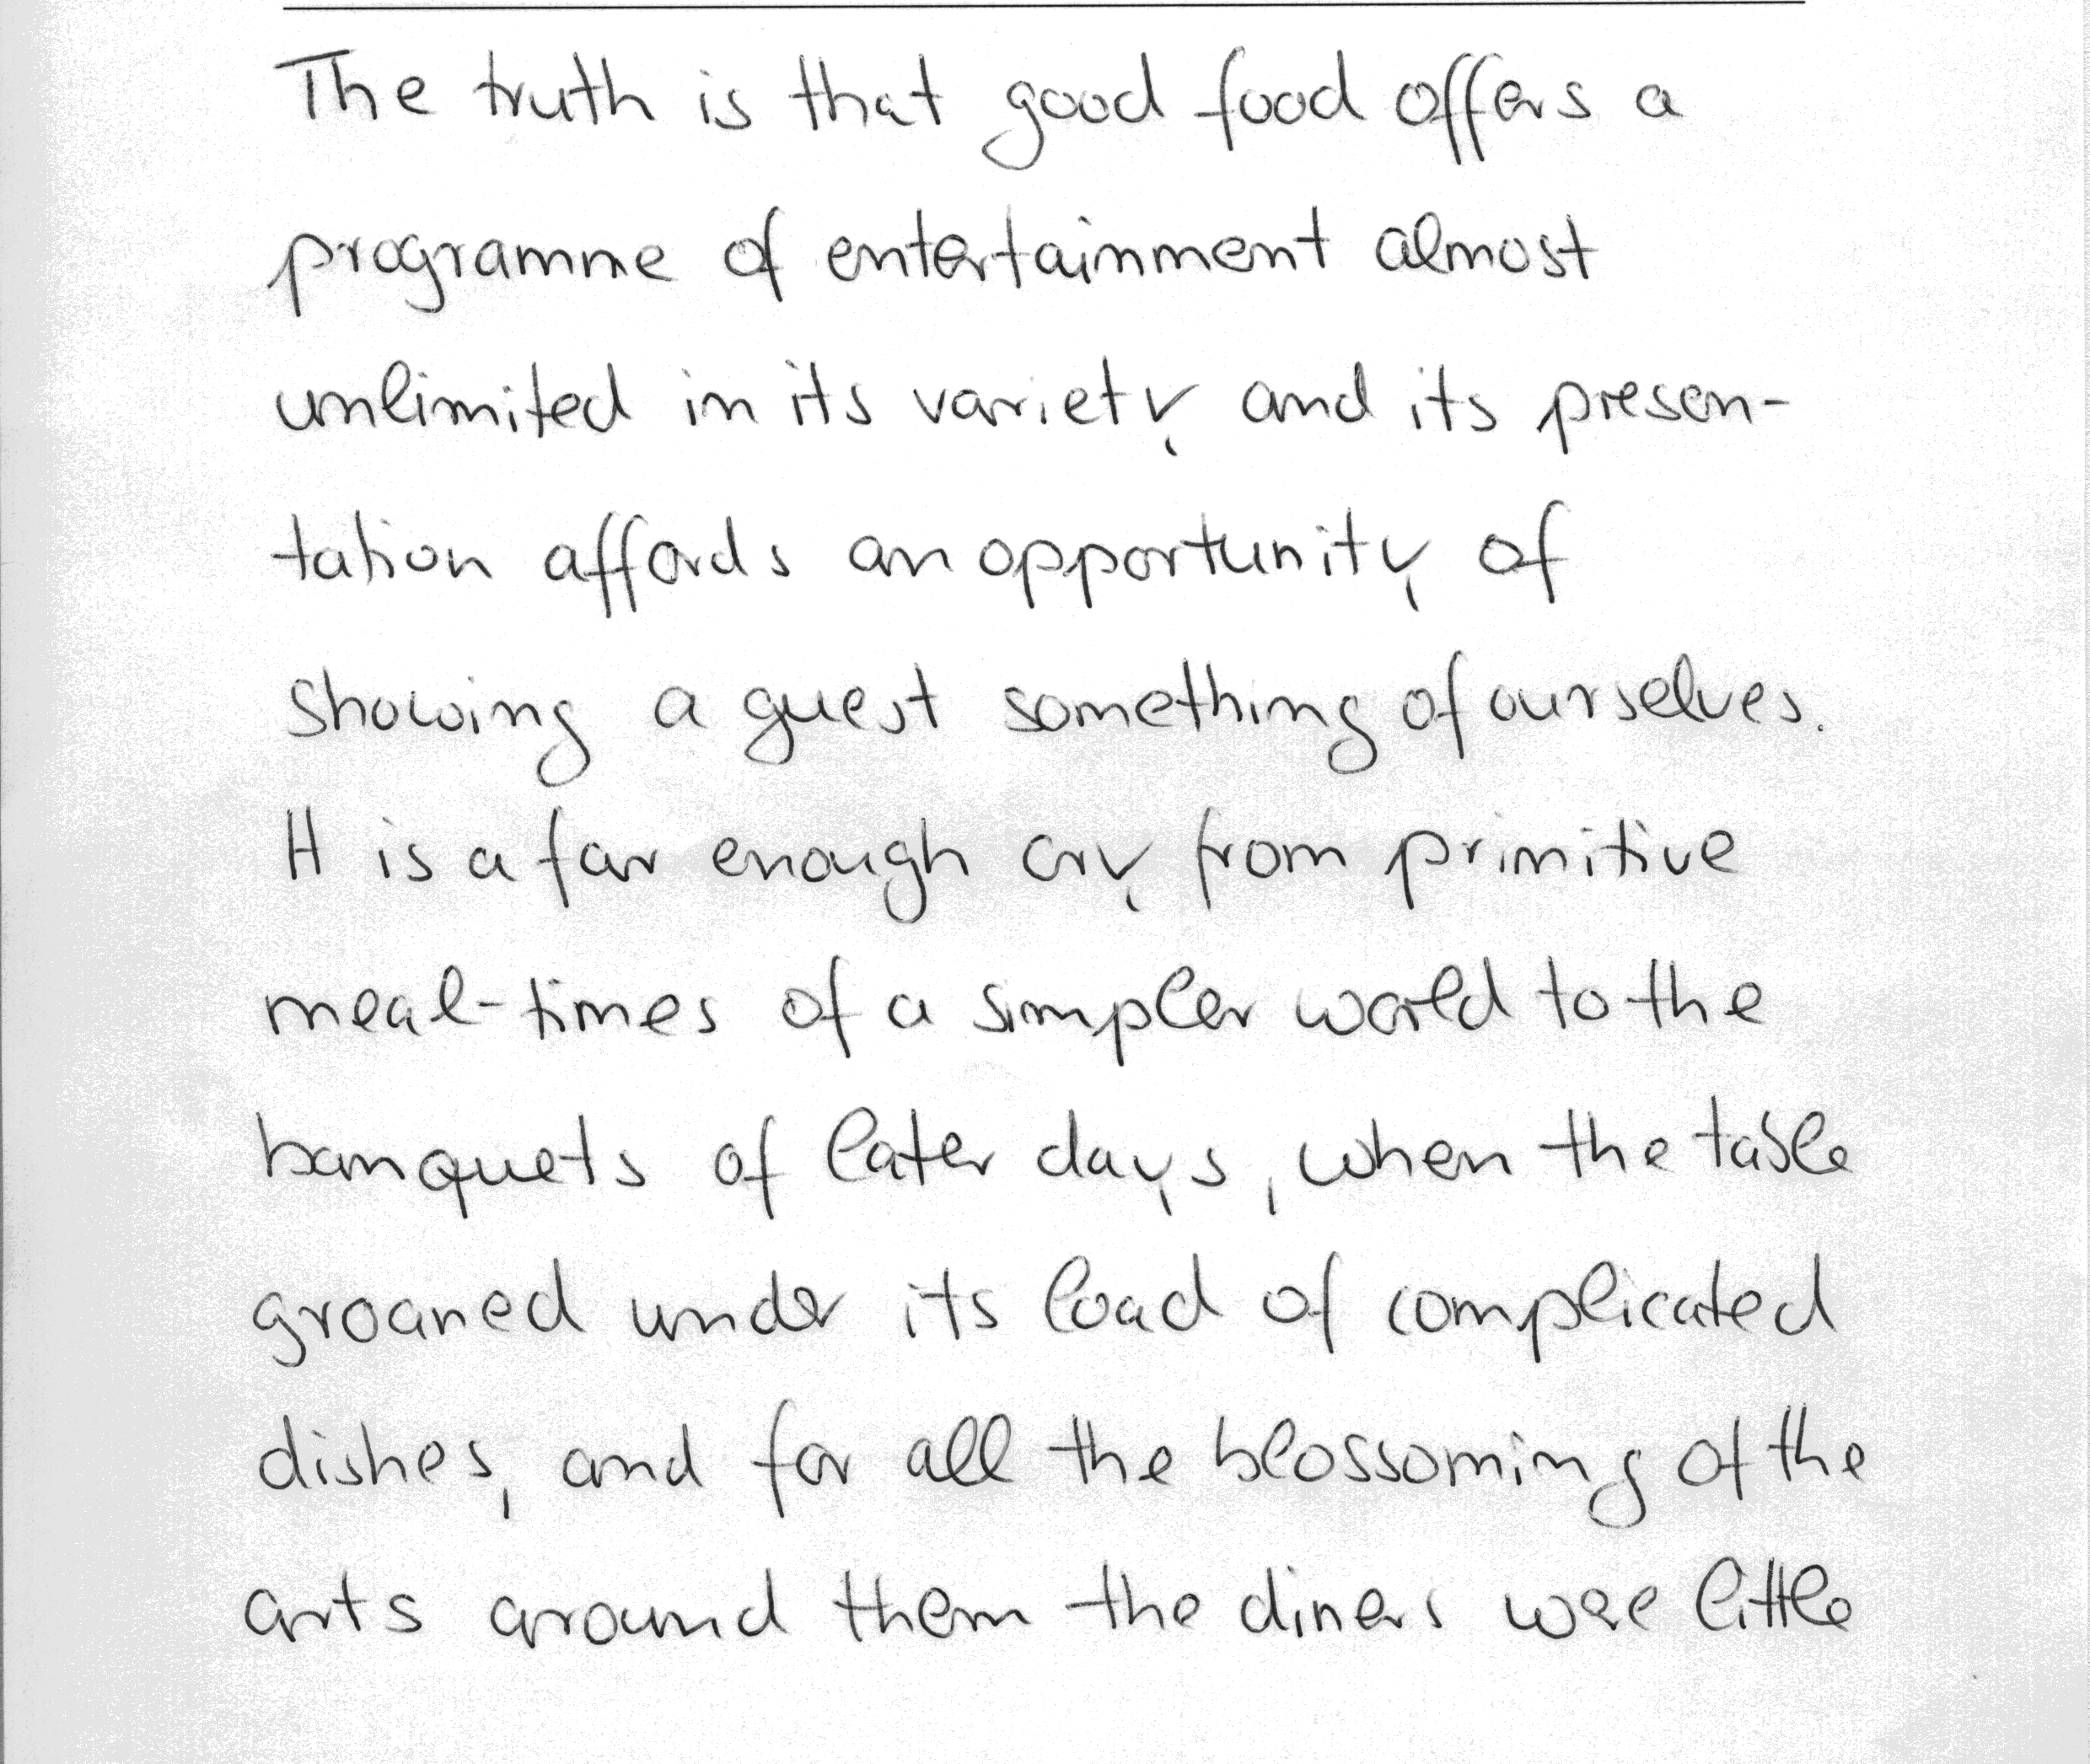 The truth is that good food offers a
programme of entertainment almost
unlimited in its variety and its presen-
tation affords an opportunity of
showing a guest something of ourselves.
It is a far enough cry from primitive
meal-times of a simpler world to the
banquets of later days, when the table
groaned under its load of complicated
dishes, and for all the blossoming of the
arts around them the diners were little